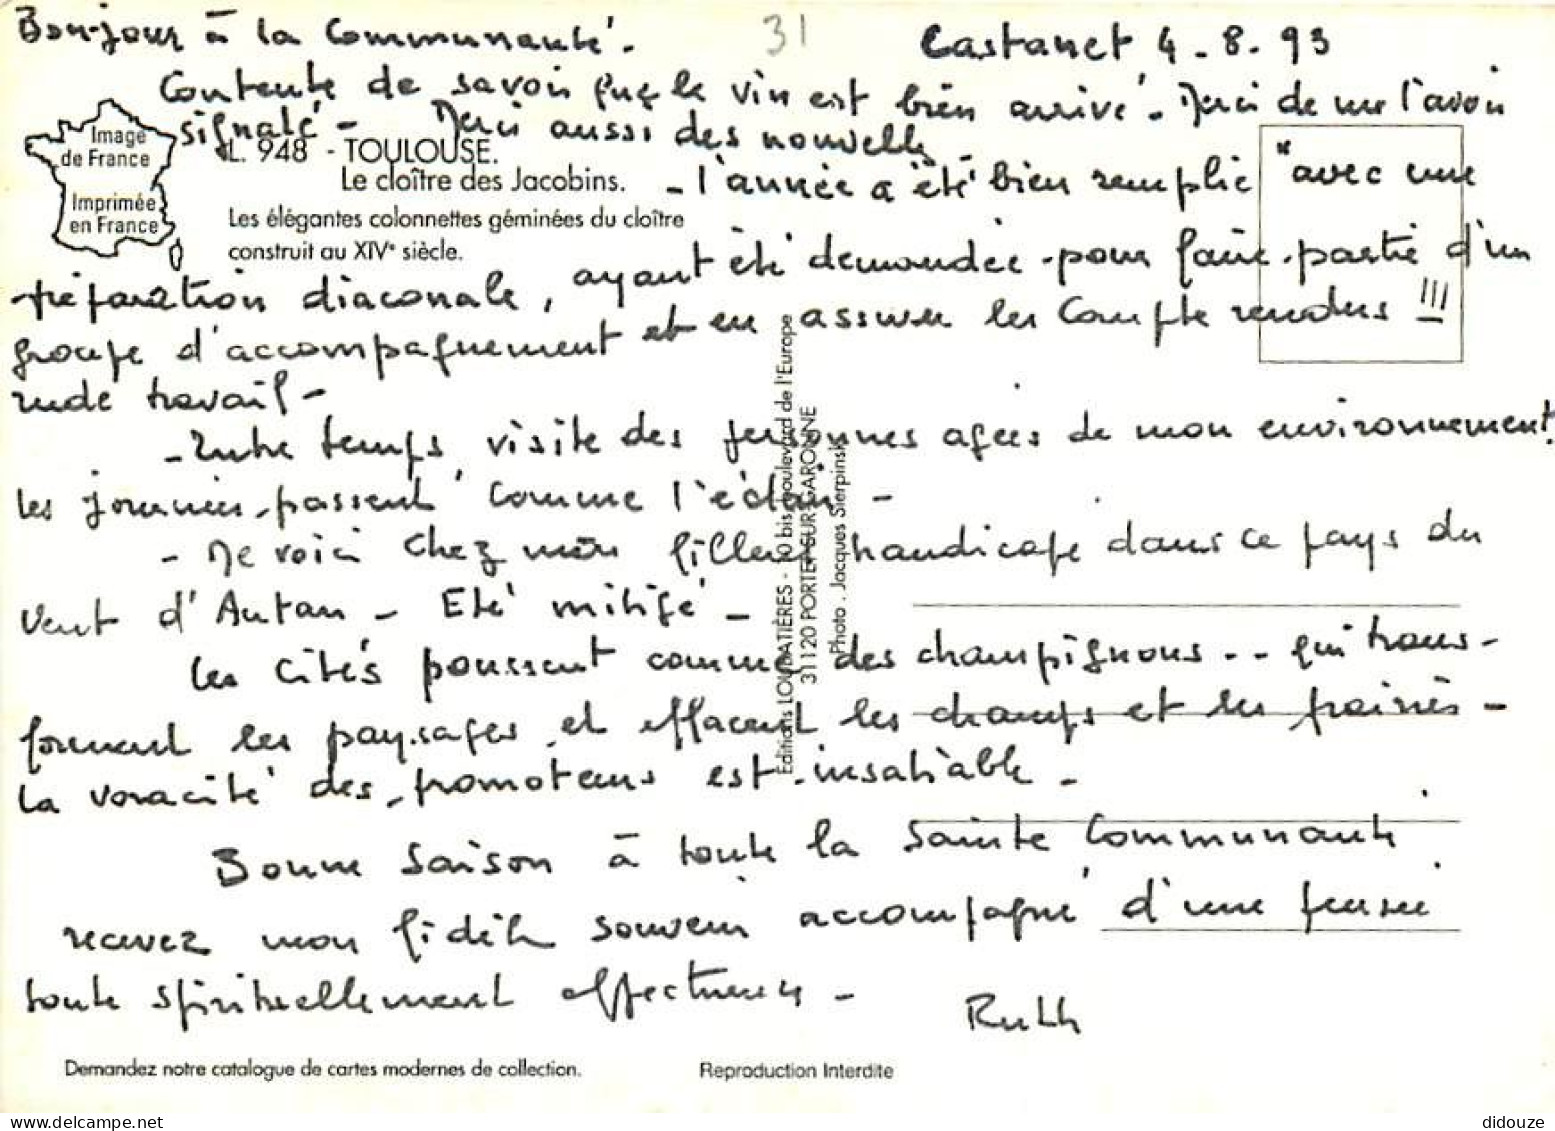 Bonjour à la Communauté.
31
Castanet 4.8.93
Contente de savoir que le vin est bien arrivé. Merci de me l'avoir
signalé - Merci aussi des nouvelles
Image
de France
Imprimée
en France
L. 948 - TOULOUSE.
Le cloître des Jacobins.
Les élégantes colonnettes géminées du cloître
construit au XIVe siècle.
- l'année a été bien remplie "avec une
préparation diaconale, ayant été demandée pour faire partie d'un
groupe d'accompagnement et en assurer les Compte rendus !!!
rude travail -
- Entre temps, visite des personnes agées de mon environnement,
les journées passent comme l'éclair -
- Me voici chez mon filleul handicapé dans ce pays du
vent d'Autan - Eté mitigé -
les Cités poussent comme des champignons .. qui trans-
forment les paysages et effacent les champs et les prairies -
la voracité des promoteurs est insatiable -
Bonne Saison à toute la Sainte Communauté
recevez mon fidèle souvenir accompagné d'une pensée
toute spirituellement affectueuse -
Ruth
Editions LOUBATIÈRES - 10 bis boulevard de l'Europe
31120 PORTET-SUR-GARONNE
Photo : Jacques Sierpinski
Demandez notre catalogue de cartes modernes de collection.
Reproduction Interdite
didouze